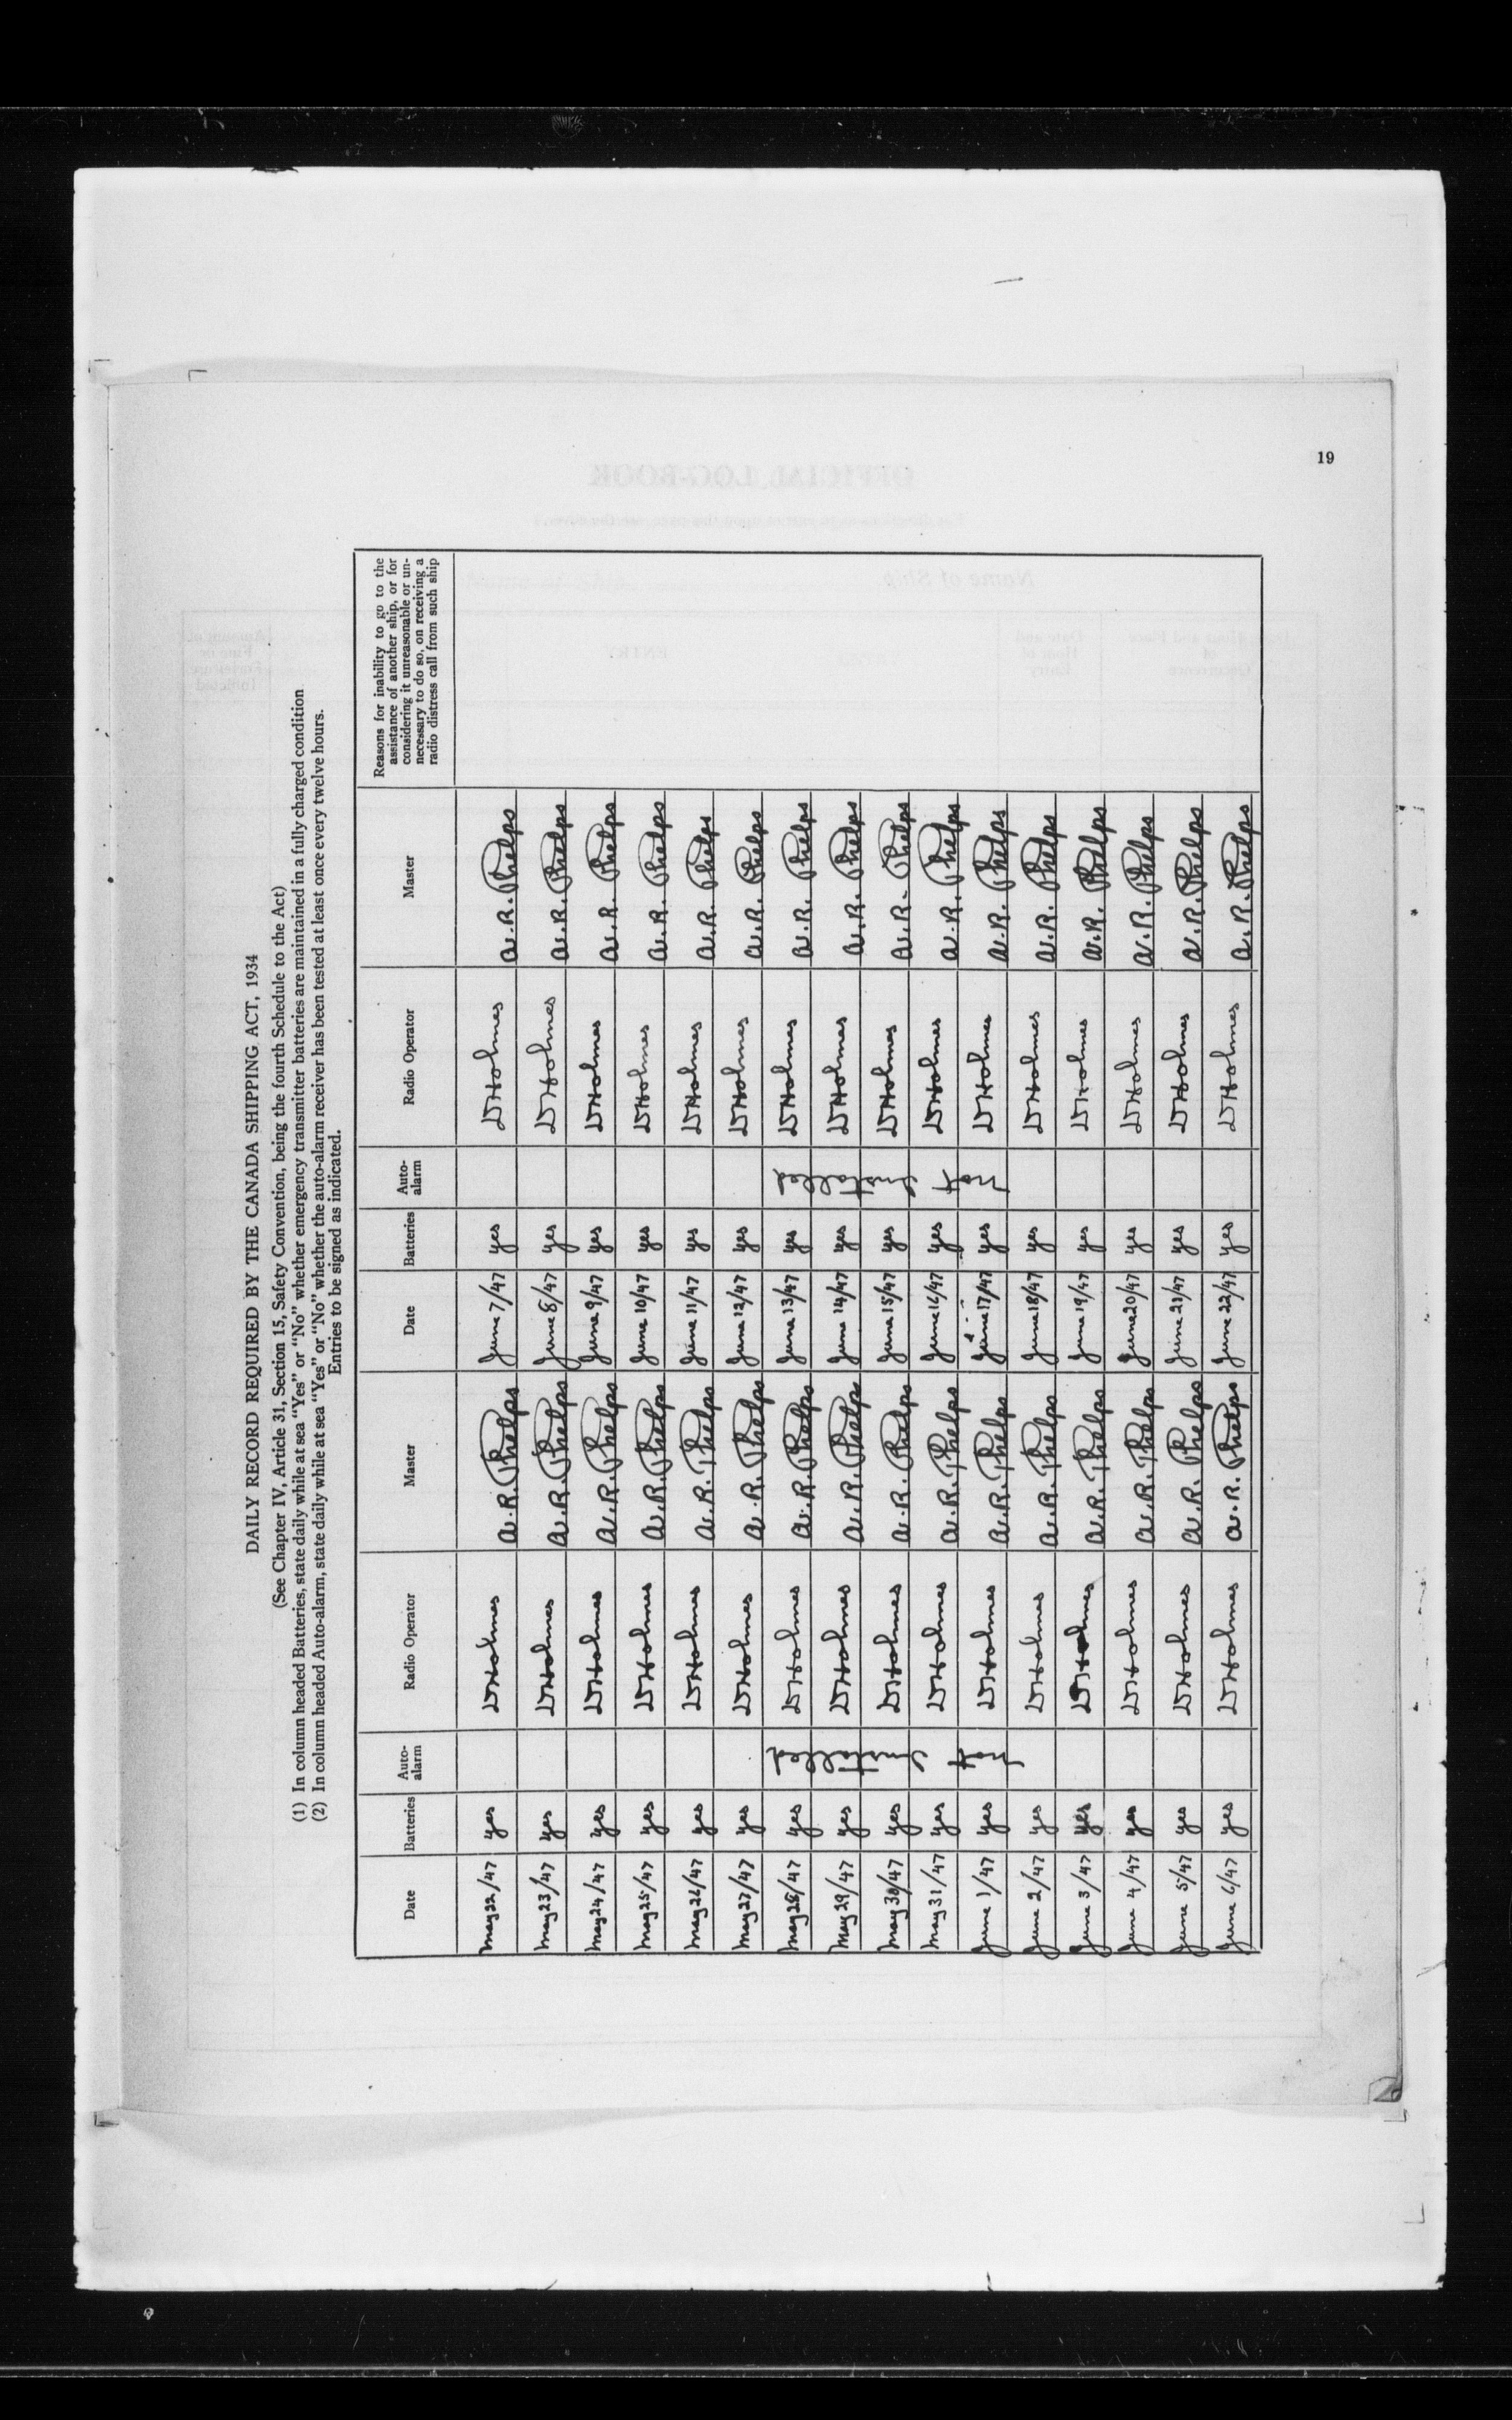 19
DAILY RECORD REQUIRED BY THE CANADA SHIPPING ACT, 1934
(See Chapter IV, Article 31, Section 15, Safety Convention, being the fourth Schedule to the Act)
(1) In column headed Batteries, state daily while at sea "Yes" or "No" whether emergency transmitter batteries are maintained in a fully charged condition
(2) In column headed Auto-alarm, state daily while at sea "Yes" or "No" whether the auto-alarm receiver has been tested at least once every twelve hours.
Entries to be signed as indicated.
Date Batteries Auto-alarm Radio Operator Master Date Batteries Auto-alarm Radio Operator Master Reasons for inability to go to the assistance of another ship, or for considering it unreasonable or unnecessary to do so, on receiving a radio distress call from such ship
May 22/47 yes W Holmes A. R. Phelps June 7/47 yes W Holmes A. R. Phelps
May 23/47 yes W Holmes A. R. Phelps June 8/47 yes W Holmes A. R. Phelps
May 24/47 yes W Holmes A. R. Phelps June 9/47 yes W Holmes A. R. Phelps
May 25/47 yes W Holmes A. R. Phelps June 10/47 yes W Holmes A. R. Phelps
May 26/47 yes W Holmes A. R. Phelps June 11/47 yes W Holmes A. R. Phelps
May 27/47 yes W Holmes A. R. Phelps June 12/47 yes W Holmes A. R. Phelps
May 28/47 yes W Holmes A. R. Phelps June 13/47 yes W Holmes A. R. Phelps
May 29/47 yes W Holmes A. R. Phelps June 14/47 yes W Holmes A. R. Phelps
May 30/47 yes W Holmes A. R. Phelps June 15/47 yes W Holmes A. R. Phelps
May 31/47 yes W Holmes A. R. Phelps June 16/47 yes W Holmes A. R. Phelps
June 1/47 yes W Holmes A. R. Phelps June 17/47 yes W Holmes A. R. Phelps
June 2/47 yes W Holmes A. R. Phelps June 18/47 yes W Holmes A. R. Phelps
June 3/47 yes W Holmes A. R. Phelps June 19/47 yes W Holmes A. R. Phelps
June 4/47 yes W Holmes A. R. Phelps June 20/47 yes W Holmes A. R. Phelps
June 5/47 yes W Holmes A. R. Phelps June 21/47 yes W Holmes A. R. Phelps
June 6/47 yes W Holmes A. R. Phelps June 22/47 yes W Holmes A. R. Phelps
not installed
not installed